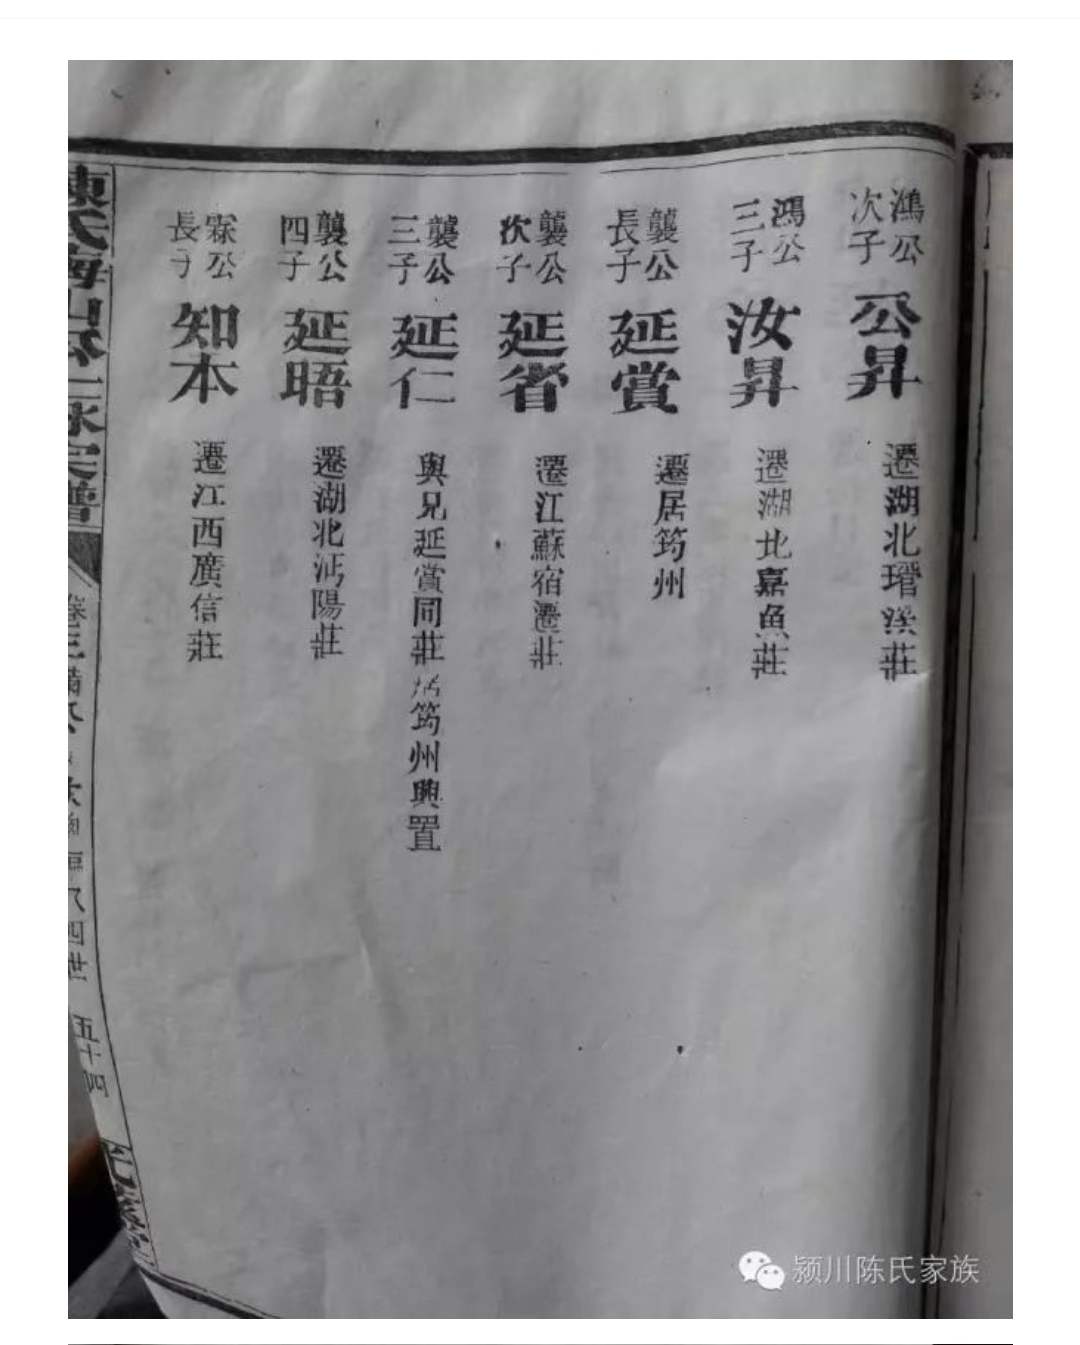 鴻公次子
公昇
遷湖北瑨溪莊
鴻公三子
汝昇
遷湖北嘉魚莊
襲公長子
延賞
遷居筠州
襲公次子
延省
遷江蘇宿遷莊
襲公三子
延仁
與兄延賞同莊 筠州興置
襲公四子
延晤
遷湖北沔陽莊
公長子
知本
遷江西廣信莊
陳氏 山公 宗譜
卷三
四世
五十四
颍川陈氏家族